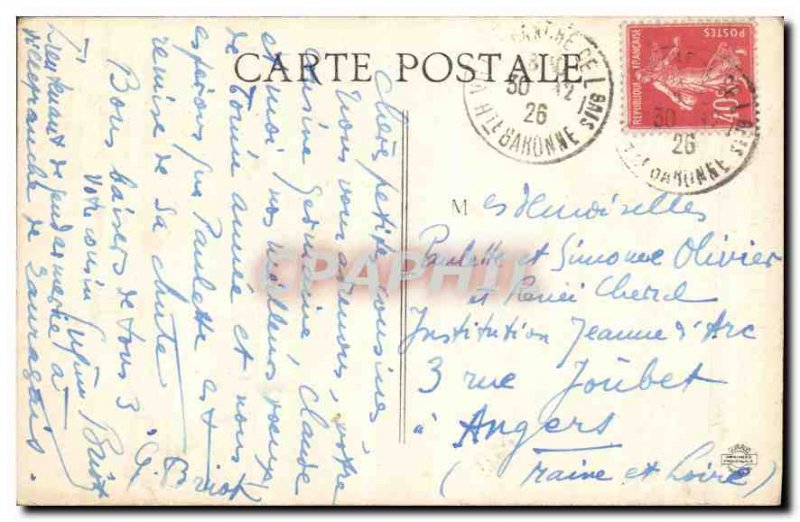 CARTE POSTALE
30 12
26
HTE GARONNE
REPUBLIQUE FRANÇAISE
POSTES
40c
30
26
Hte GARONNE
Chères petites cousines,
Nous vous adressons, votre
cousine Germaine, Claude
et moi, nos meilleurs voeux
de bonne année et nous
espérons que Paulette est
remise de sa chute.
Bons baisers de tous 3
Votre cousin
G. Briot
Lieutenant de gendarmerie à
Villefranche de Lauragais.
Mesdemoiselles
Paulette et Simonne Olivier
et Renée Cherel
Institution Jeanne d'Arc
3 rue Joubet
à Angers
(Maine et Loire)
CPAPHIL